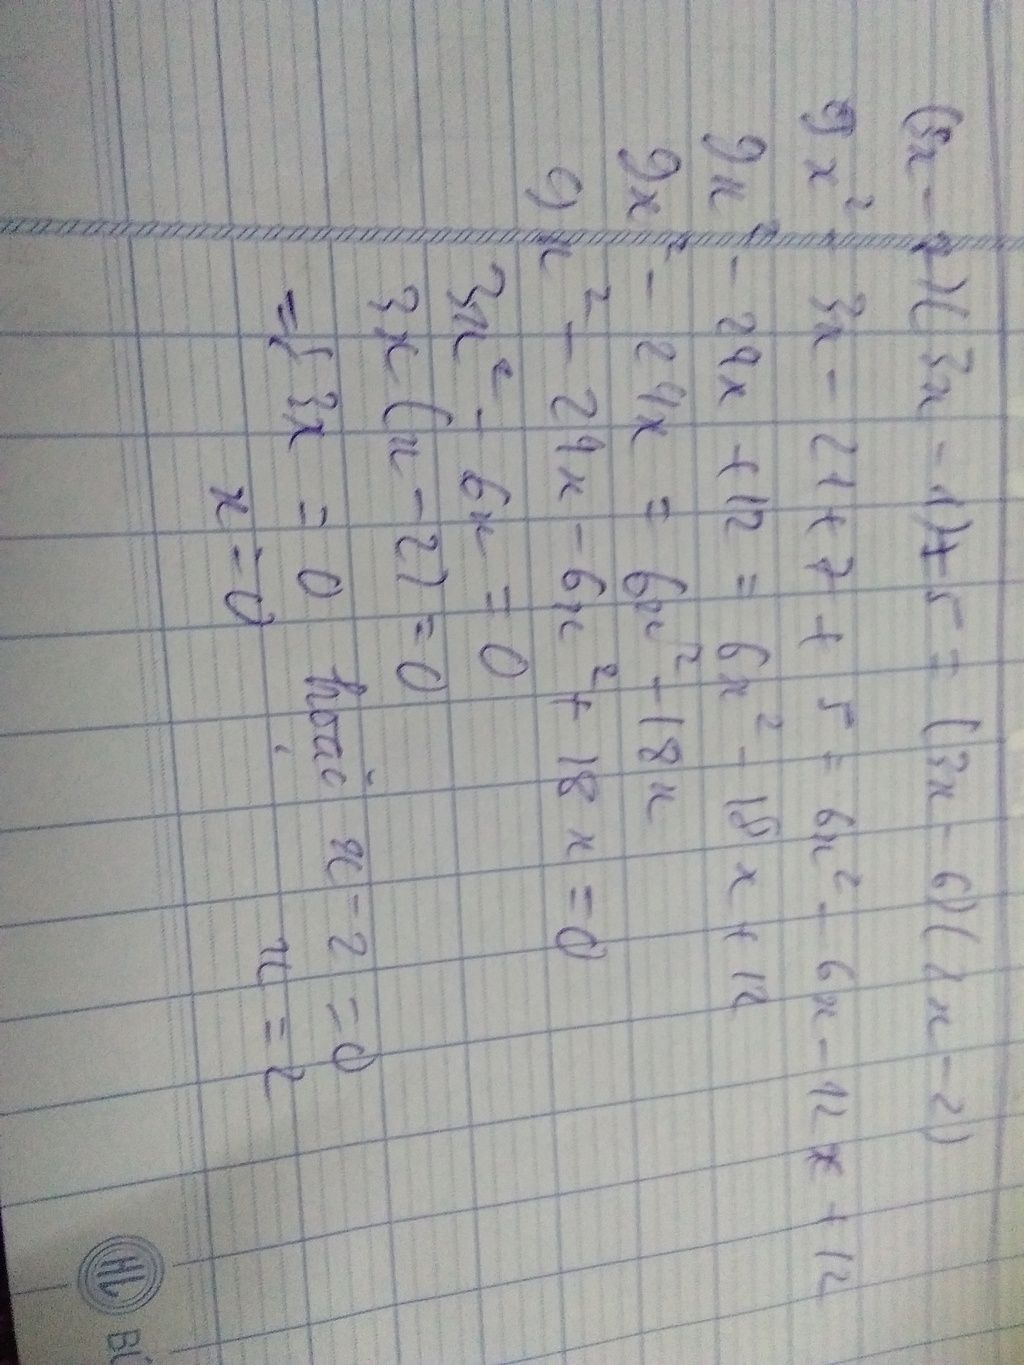 (3x - 7)(3x - 1) + 5 = (3x - 6)(2x - 2)
9x² - 3x - 21 + 7 + 5 = 6x² - 6x - 12x + 12
9x² - 24x + 12 = 6x² - 18x + 12
9x² - 24x = 6x² - 18x
9x² - 24x - 6x² + 18x = 0
3x² - 6x = 0
3x(x - 2) = 0
=> 3x = 0 hoặc x - 2 = 0
x = 0 x = 2
HL